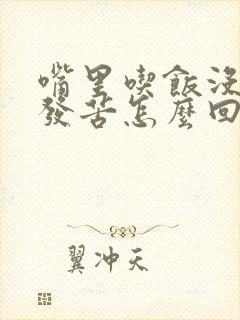 嘴里喫飯没
發苦怎麼回
翼冲天